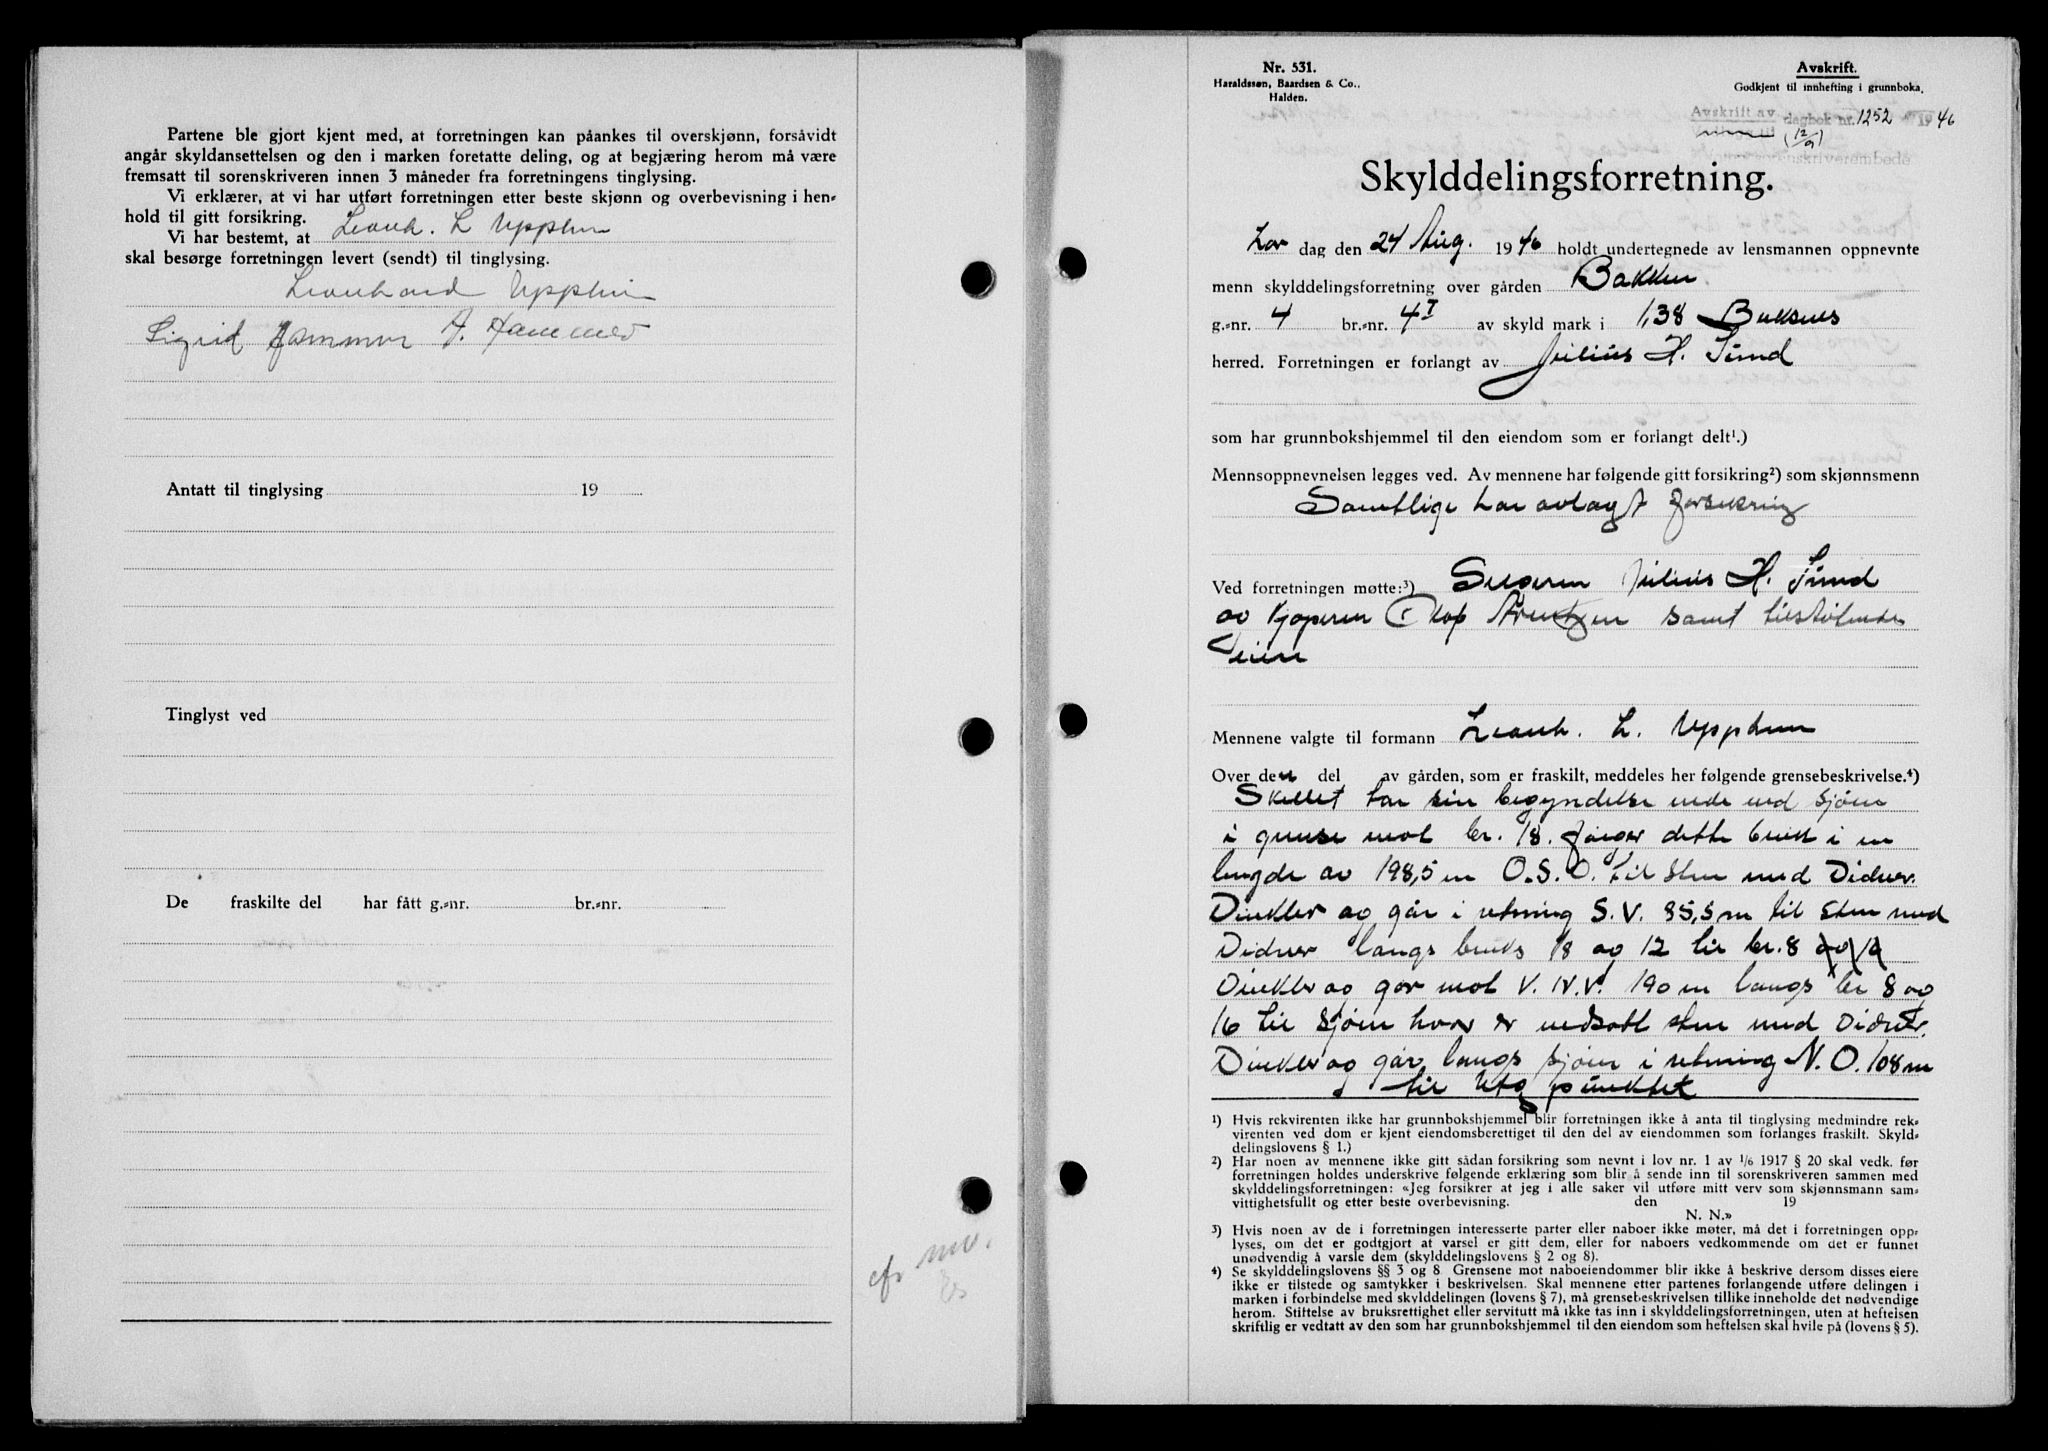 Partene ble gjort kjent med, at forretningen kan påankes til overskjønn, forsåvidt
angår skyldansettelsen og den i marken foretatte deling, og at begjæring herom må være
fremsatt til sorenskriveren innen 3 måneder fra forretningens tinglysing.
Vi erklærer, at vi har utført forretningen etter beste skjønn og overbevisning i hen-
hold til gitt forsikring.
Vi har bestemt, at Leonh. L
skal besørge forretningen levert (sendt) til tinglysing.
Leonhard
Sigrid Hammer A. Hammer
Antatt til tinglysing 19
Tinglyst ved
De fraskilte del har fått g.-nr. br.-nr.
cfr
Nr. 531.
Haraldssøn, Baardsen & Co.,
Halden.
Avskrift.
Godkjent til innhefting i grunnboka.
Avskrift av dagbok nr. 1252 1946
(12/9)
sorenskriverembede
Skylddelingsforretning.
Lør dag den 24 Aug. 1946 holdt undertegnede av lensmannen oppnevnte
menn skylddelingsforretning over gården Bakken
g.-nr. 4 br.-nr. 4 I av skyld mark i 1,38 Buksnes
herred. Forretningen er forlangt av Julius H. Sund
som har grunnbokshjemmel til den eiendom som er forlangt delt¹.)
Mennsoppnevnelsen legges ved. Av mennene har følgende gitt forsikring²) som skjønnsmenn
Samtlige har avlagt forsikring
Ved forretningen møtte:³) Selgeren Julius H. Sund
og kjøperen Olaf Arntzen samt tilstøtende
eiere
Mennene valgte til formann Leonh. L.
Over den del av gården, som er fraskilt, meddeles her følgende grensebeskrivelse.⁴)
Skillet tar sin begyndelse nede ved sjøen
i grense mot br. 18. følger dette bruk i en
lengde av 198,5 m O.S.O. til sten med Vidner.
Vinkler og går i retning S.V. 85,5 m til sten med
Vidner langs bruks 18 og 12 til br. 8
Vinkler og går mot V.N.V. 190 m langs br 8 og
16 til sjøen hvor er nedsatt sten med Vidner.
Vinkler og går langs sjøen i retning N.O. 108 m
til Utg punktet
¹) Hvis rekvirenten ikke har grunnbokshjemmel blir forretningen ikke å anta til tinglysing medmindre rek-
virenten ved dom er kjent eiendomsberettiget til den del av eiendommen som forlanges fraskilt. Skyld-
delingslovens § 1.)
²) Har noen av mennene ikke gitt sådan forsikring som nevnt i lov nr. 1 av 1/6 1917 § 20 skal vedk. før
forretningen holdes underskrive følgende erklæring som blir å sende inn til sorenskriveren sammen med
skylddelingsforretningen: «Jeg forsikrer at jeg i alle saker vil utføre mitt verv som skjønnsmann sam-
vittighetsfullt og etter beste overbevisning. den 19
N. N.»
³) Hvis noen av de i forretningen interesserte parter eller naboer ikke møter, må det i forretningen opp-
lyses, om det er godtgjort at varsel er gitt dem, eller for naboers vedkommende om det er funnet
unødvendig å varsle dem (skylddelingslovens § 2 og 8).
⁴) Se skylddelingslovens §§ 3 og 8. Grensene mot naboeiendommer blir ikke å beskrive dersom disses eiere
ikke er tilstede og samtykker i beskrivelsen. Skal mennene etter partenes forlangende utføre delingen i
marken i forbindelse med skylddelingen (lovens § 7), må grensebeskrivelsen tillike inneholde det nødvendige
herom. Stiftelse av bruksrettighet eller servitutt må ikke tas inn i skylddelingsforretningen, uten at heftelsen
skriftlig er vedtatt av den som har grunnbokshjemmel til den eiendom som heftelsen skal hvile på (lovens § 5).